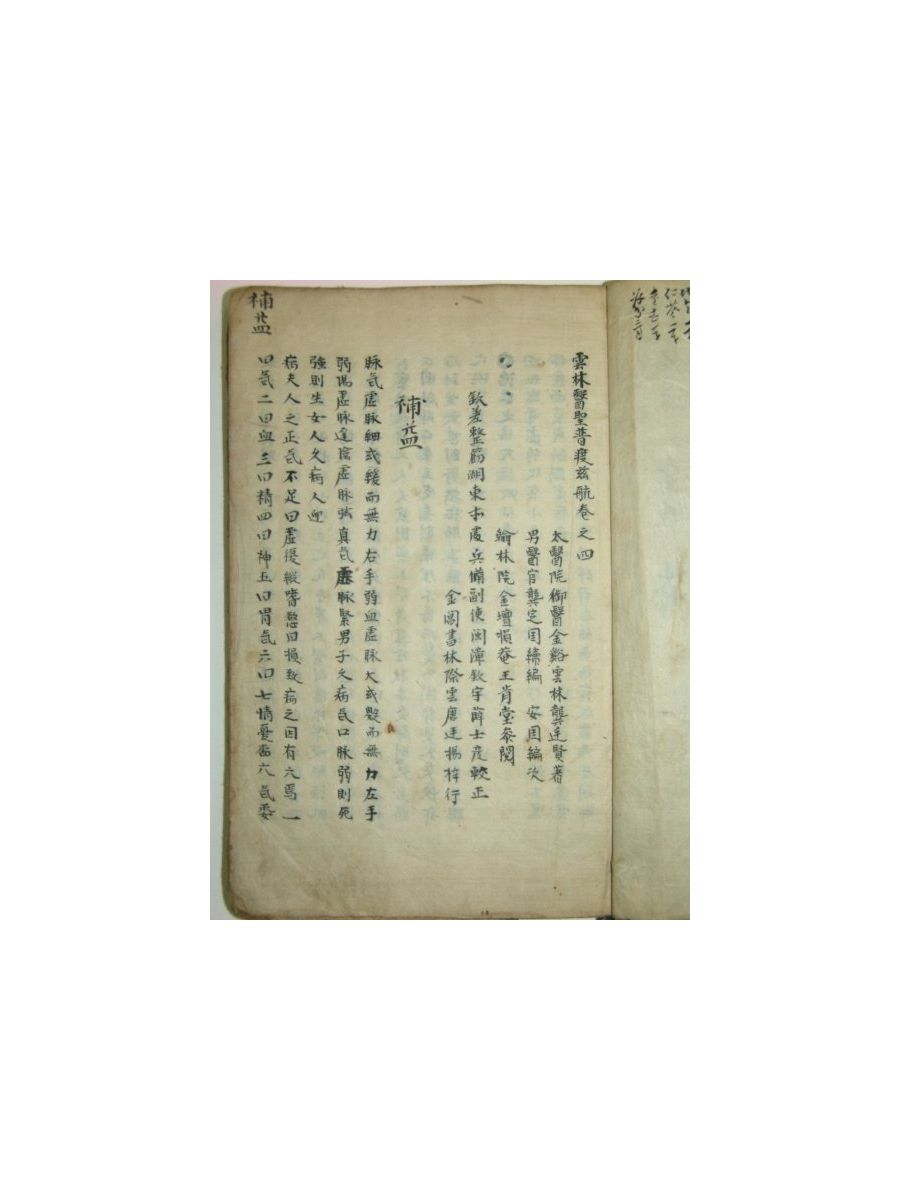 雲林醫聖普渡玆航卷之四
太醫院御醫金谿雲林龔廷賢著
男醫官龔定囯續編 安囯編次
翰林院金壇損菴王肯堂叅閱
欽差整飭湖東
兵備副使閩漳欽宇薛士彦較正
金閶書林際雲唐廷揚梓行
補益
脉氣虛脉細或緩而無力右手弱血虛脉大或數而無力左手
弱陽虛脉遲陰虛脉弦真氣虛脉緊男子久病氣口脉弱則死
強則生女人久病人迎
病夫人之正氣不足曰虛復縱嗜慾曰損致病之因有六焉一
曰氣二曰血三曰精四曰神五曰胃氣六曰七情憂
六氣
補益